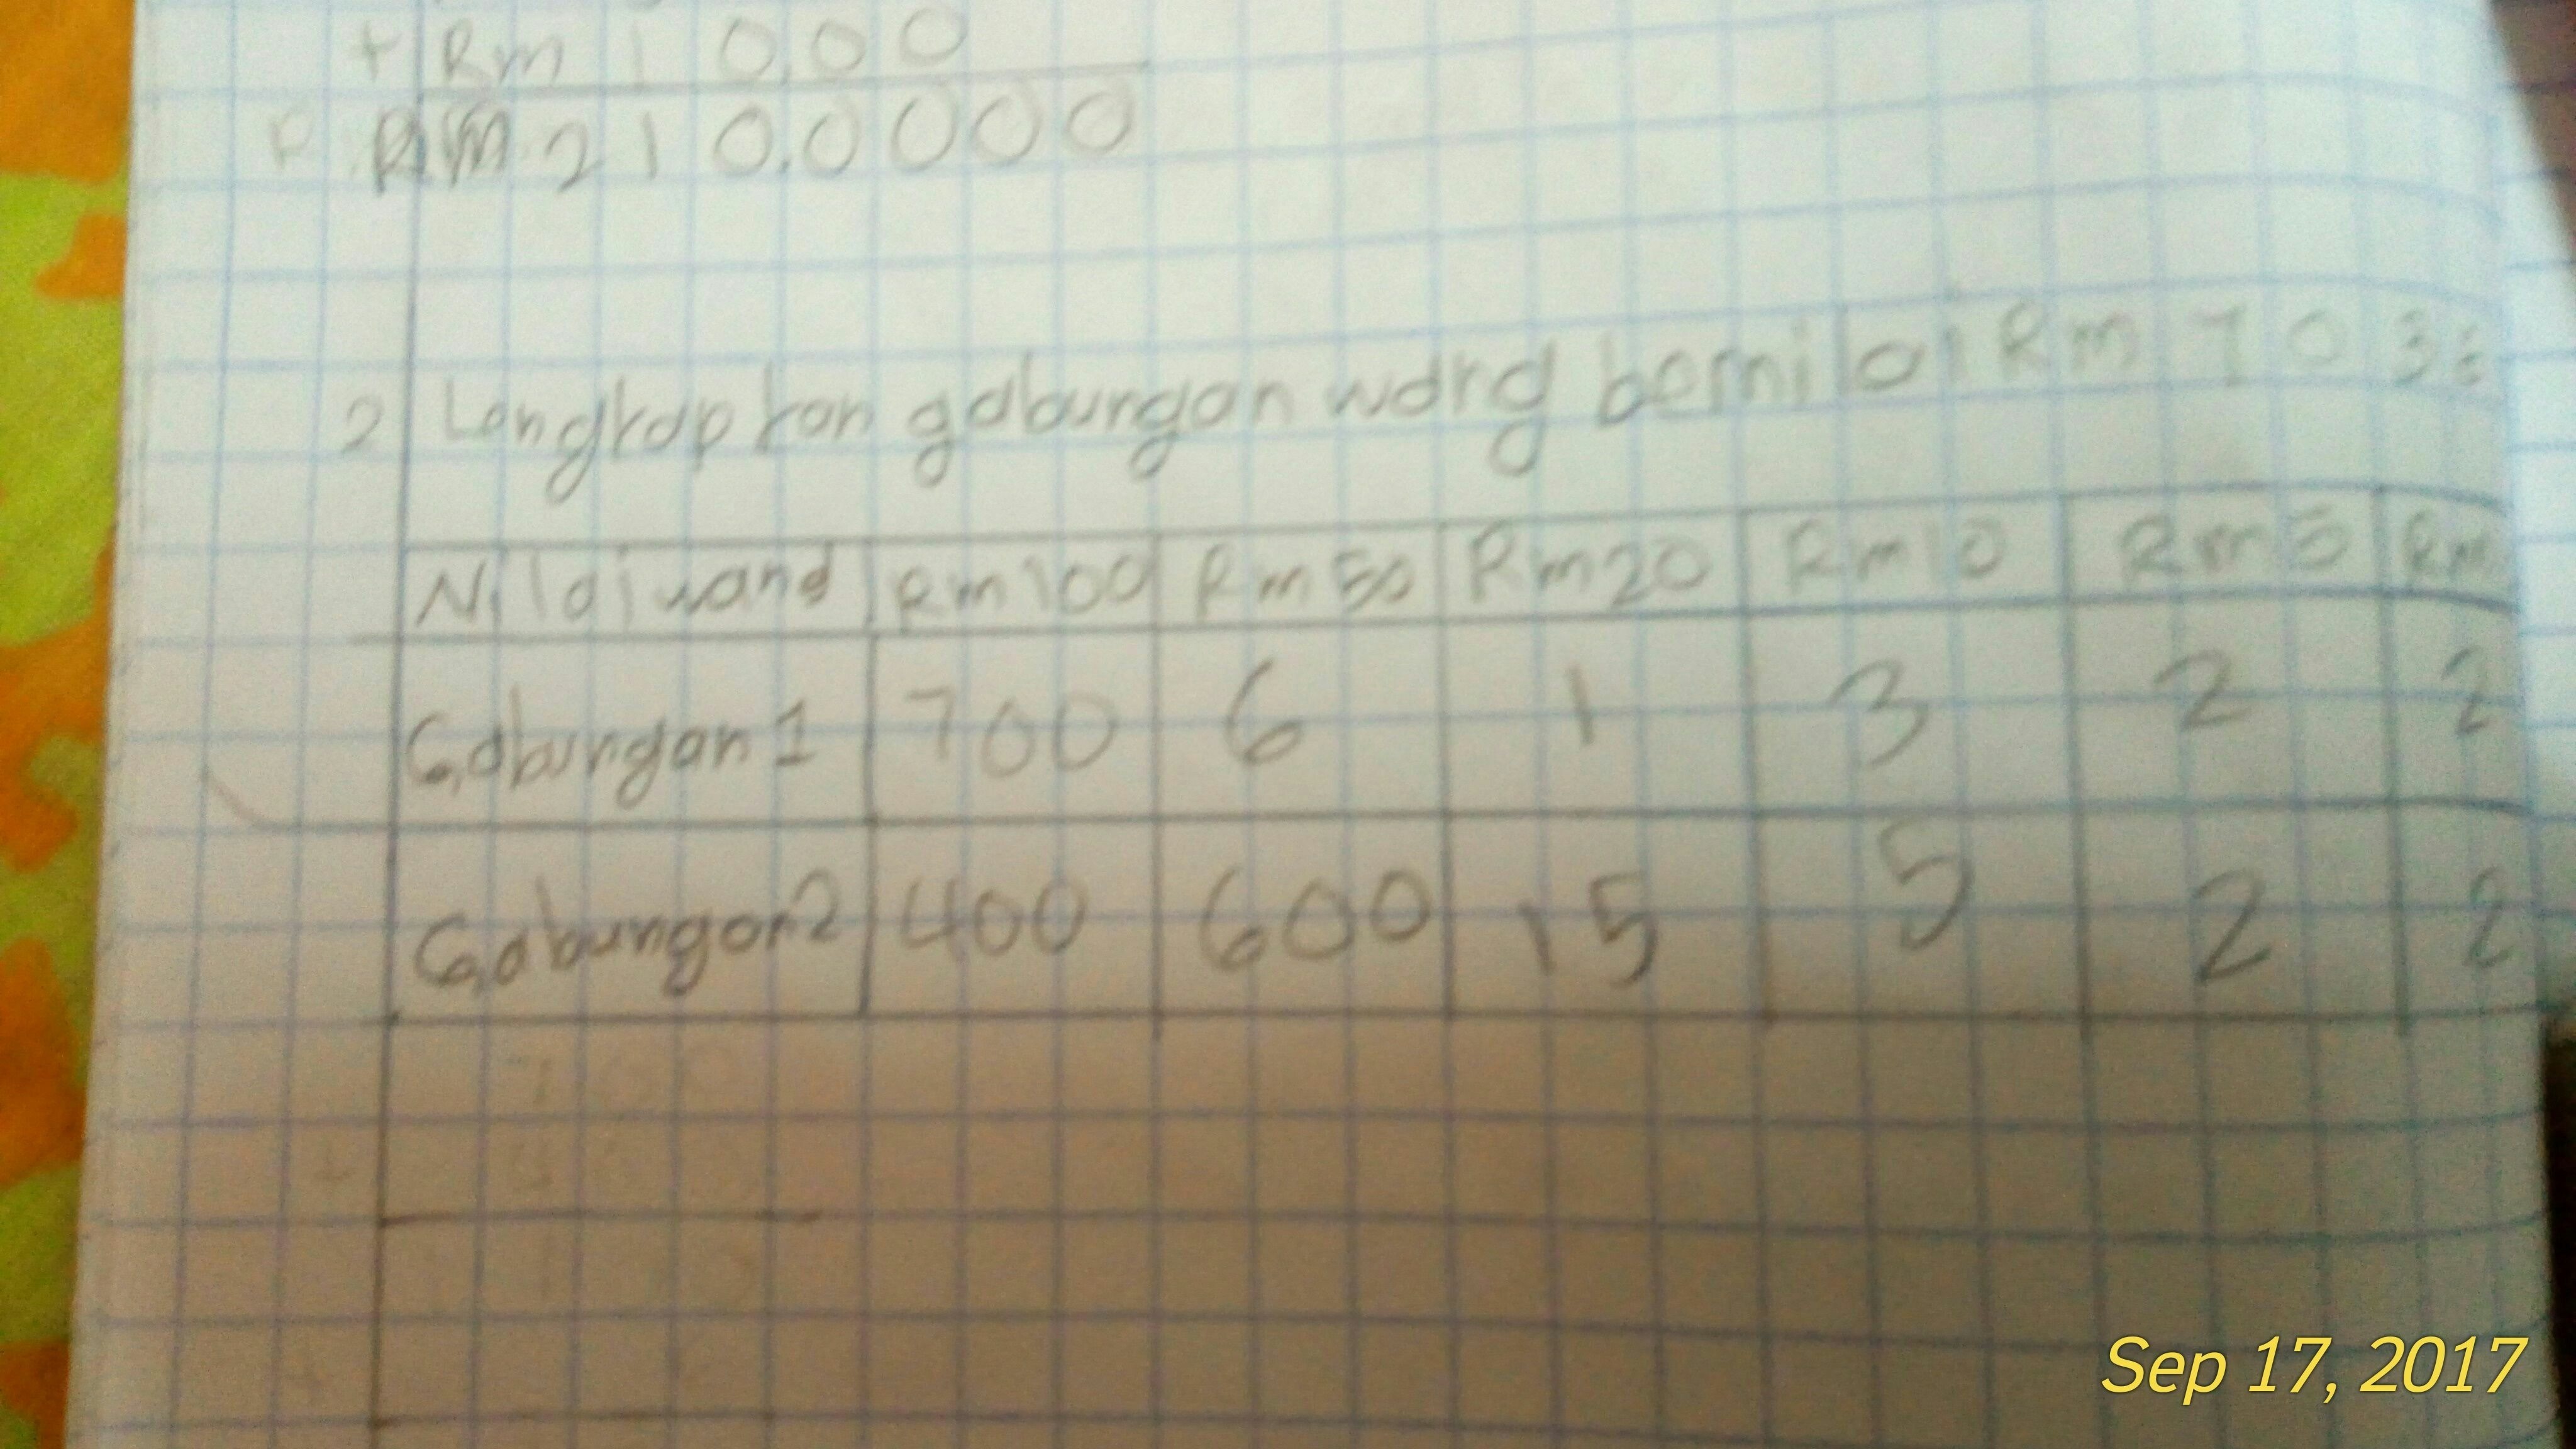 + Rm 1 0.00
Rm 2 1 0.0000
2 Lengkapkan gabungan wang bernilai Rm 703
Nilai wang Rm100 Rm50 Rm20 Rm10 Rm5 Rm
Gabungan 1 700 6 1 3 2 2
Gabungan2 400 600 15 5 2 2
Sep 17, 2017